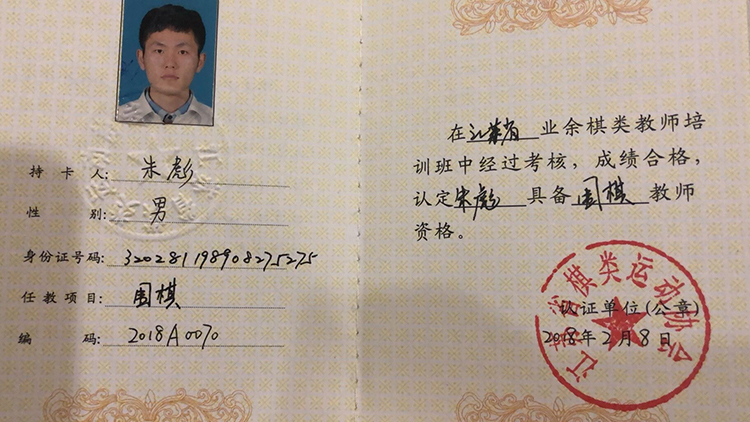 持卡人: 朱彪
性别: 男
身份证号码: 320281198908275275
任教项目: 围棋
编码: 2018A0070
在江苏省业余棋类教师培
训班中经过考核，成绩合格，
认定朱彪具备围棋教师
资格。
江苏省棋类运动协会
认证单位(公章)
2018年2月8日